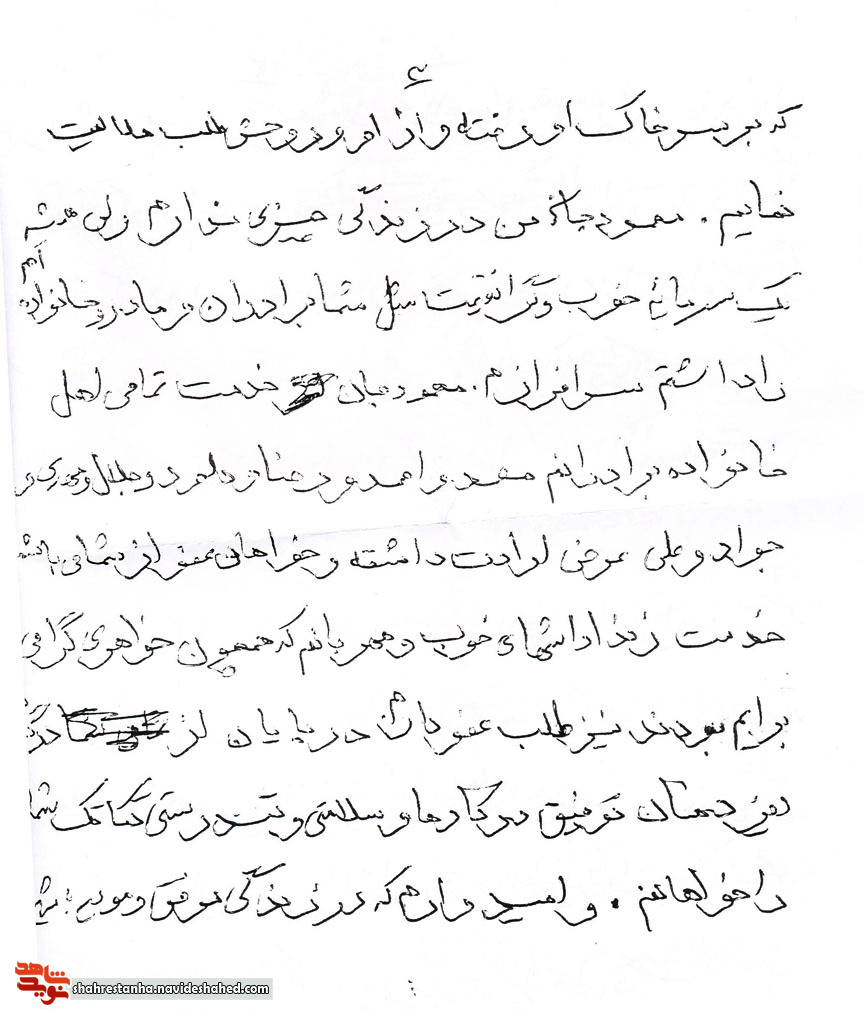 ۶
که بر سر خاک او رفته و از او و روحش طلب حلالیت
نمایم . محمود جان من در زندگی چیزی ندارم ولی همیشه
یک سرمایه خوب و گرانقیمت مثل شما برادران و مادر و خانواده ام
را داشتم سرافرازم . محمود جان خدمت تمامی اهل
خانواده برادرانم و احمد و رضا و و جلال و مهدی و
جواد و علی عرض ارادت داشته و خواهان عفو از شما می باشم
خدمت زن داداشهای خوب و مهربانم که همچون خواهری گرامی
برایم بودند نیز طلب عفو دارم در پایان از
توفیق در کارها و سلامتی و تندرستی تک تک شما
را خواهانم . و امیدوارم که در زندگی موفق و موید باشید
شاهد
نوید
shahrestanha.navideshahed.com